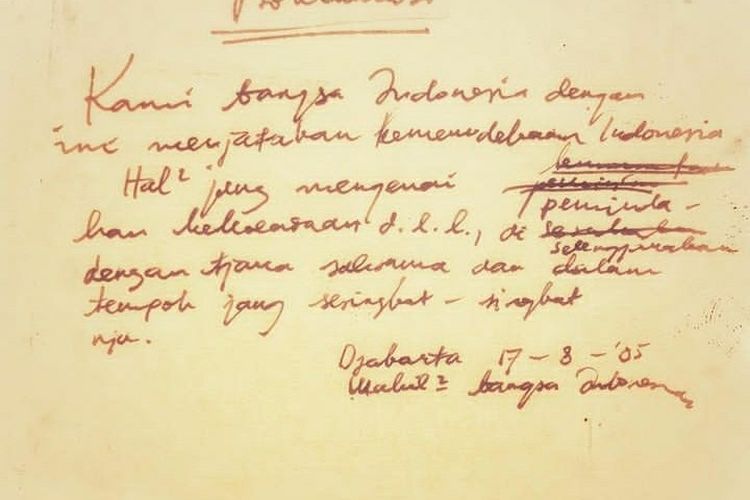 Proklamasi
Kami bangsa Indonesia dengan
ini menjatakan kemerdekaan Indonesia
Hal² jang mengenai peminda-
han kekoeasaan d.l.l., di
selenggarakan
dengan tjara saksama dan dalam
tempoh jang sesingkat-singkat
nja.
Djakarta 17 - 8 - '05
Wakil² bangsa Indonesia